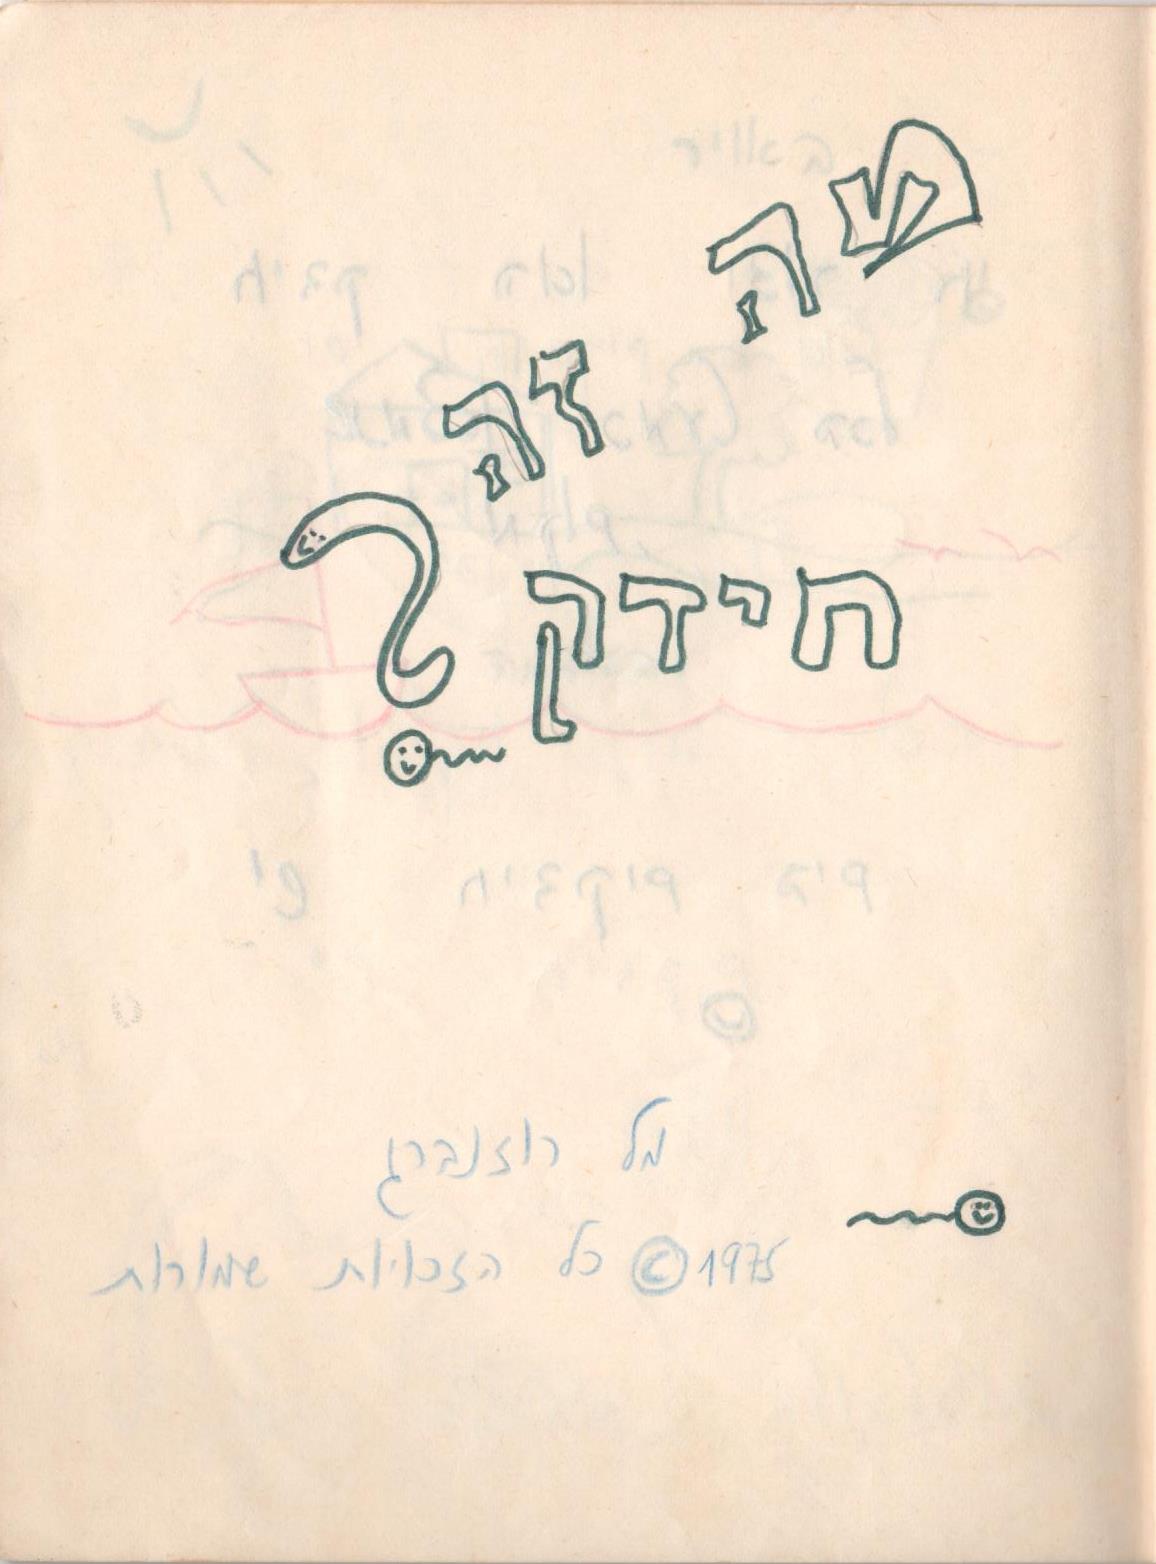 מה
זה
חידק?
מל רוזנברג
1975 © כל הזכויות שמורות